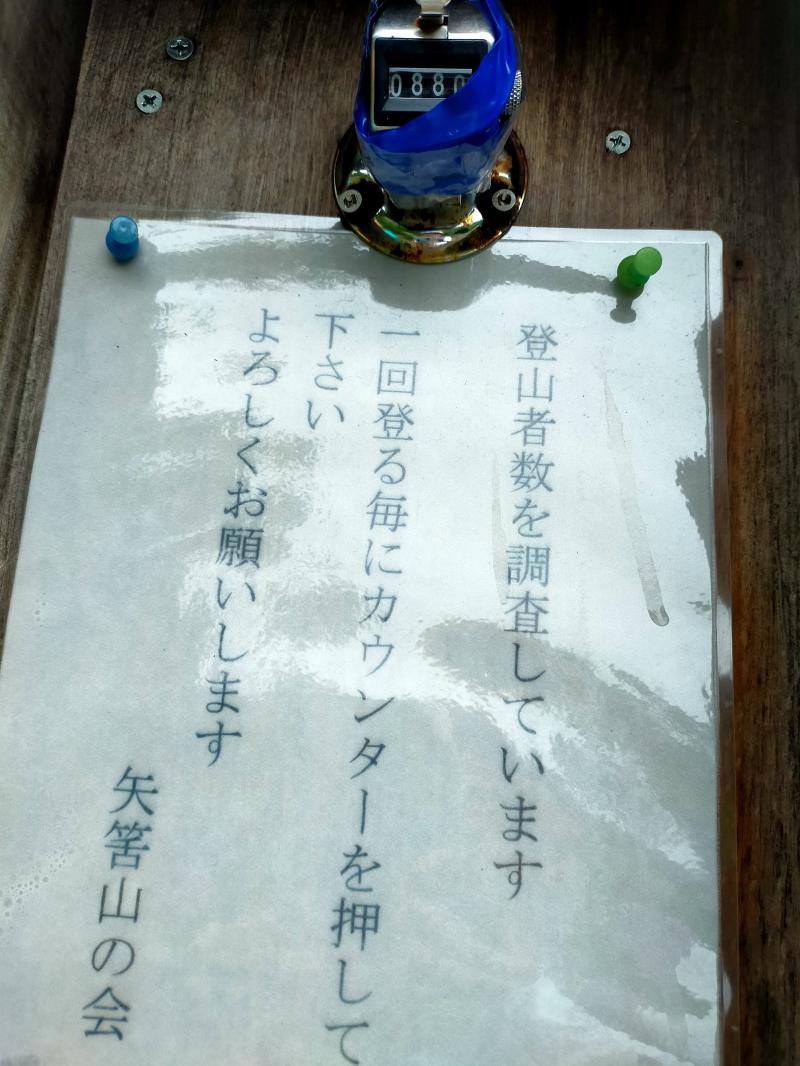 0880
登山者数を調査しています
一回登る毎にカウンターを押して
下さい
よろしくお願いします
矢筈山の会